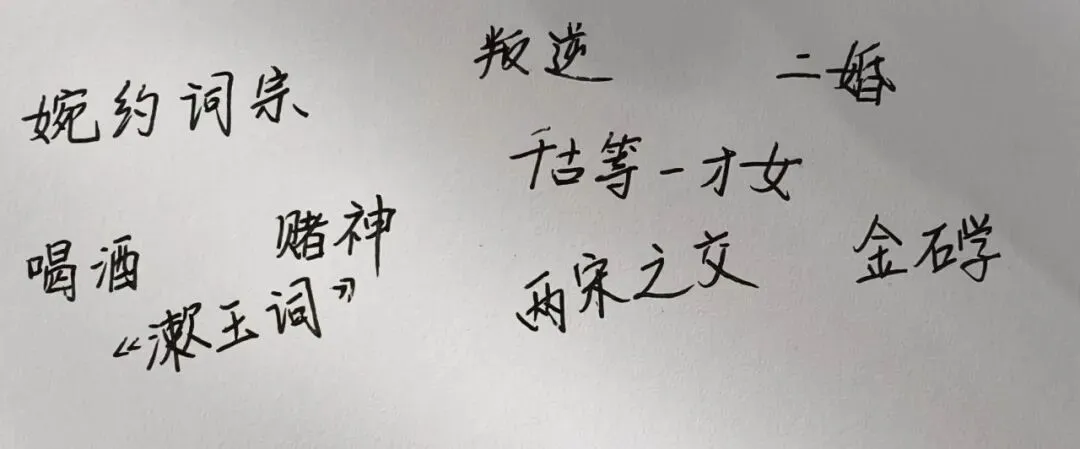 叛逆
二婚
婉约词宗
千古等一才女
赌神
喝酒
两宋之交
金石学
《漱玉词》